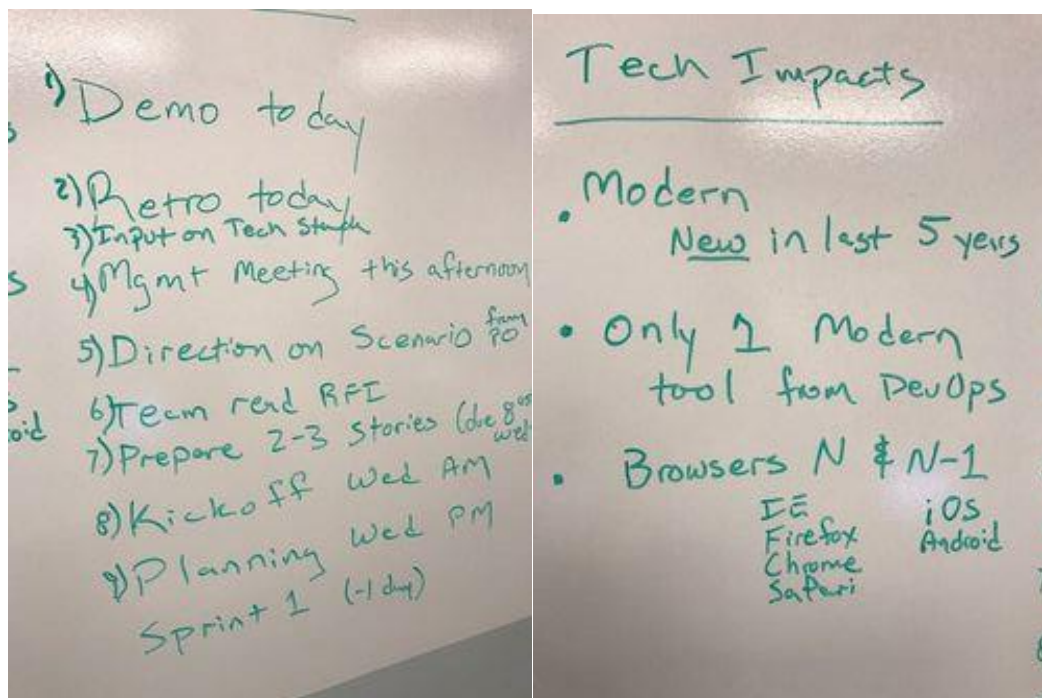 1) Demo today
2) Retro today
3) Input on Tech Stack
4) Mgmt Meeting this afternoon
5) Direction on Scenario from PO
6) Team read RFI
7) Prepare 2-3 Stories (due 8 wed
8) Kickoff Wed AM
9) Planning Wed PM
Sprint 1 (-1 day)
Tech Impacts
• Modern
New in last 5 years
• Only 1 Modern
tool from DevOps
• Browsers N & N-1
IE iOS
Firefox Android
Chrome
Safari